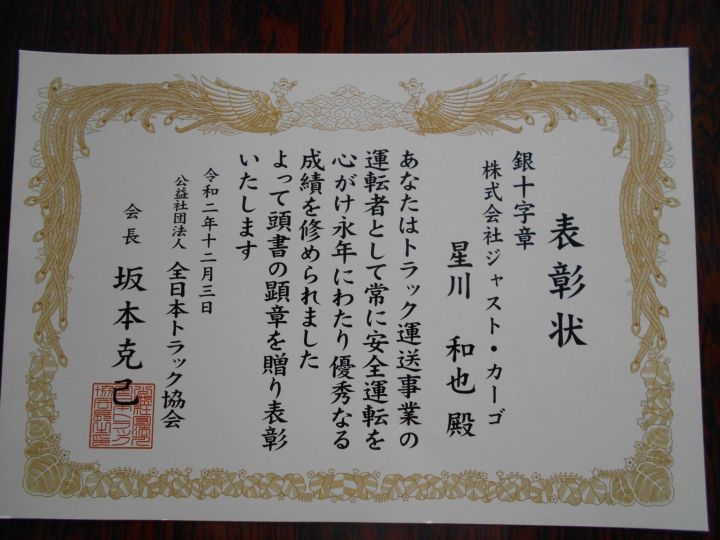 表彰状
銀十字章
株式会社ジャスト・カーゴ
星川 和也 殿
あなたはトラック運送事業の
運転者として常に安全運転を
心がけ永年にわたり優秀なる
成績を修められました
よって頭書の顕章を贈り表彰
いたします
令和二年十二月三日
公益社団法人 全日本トラック協会
会長 坂本克己